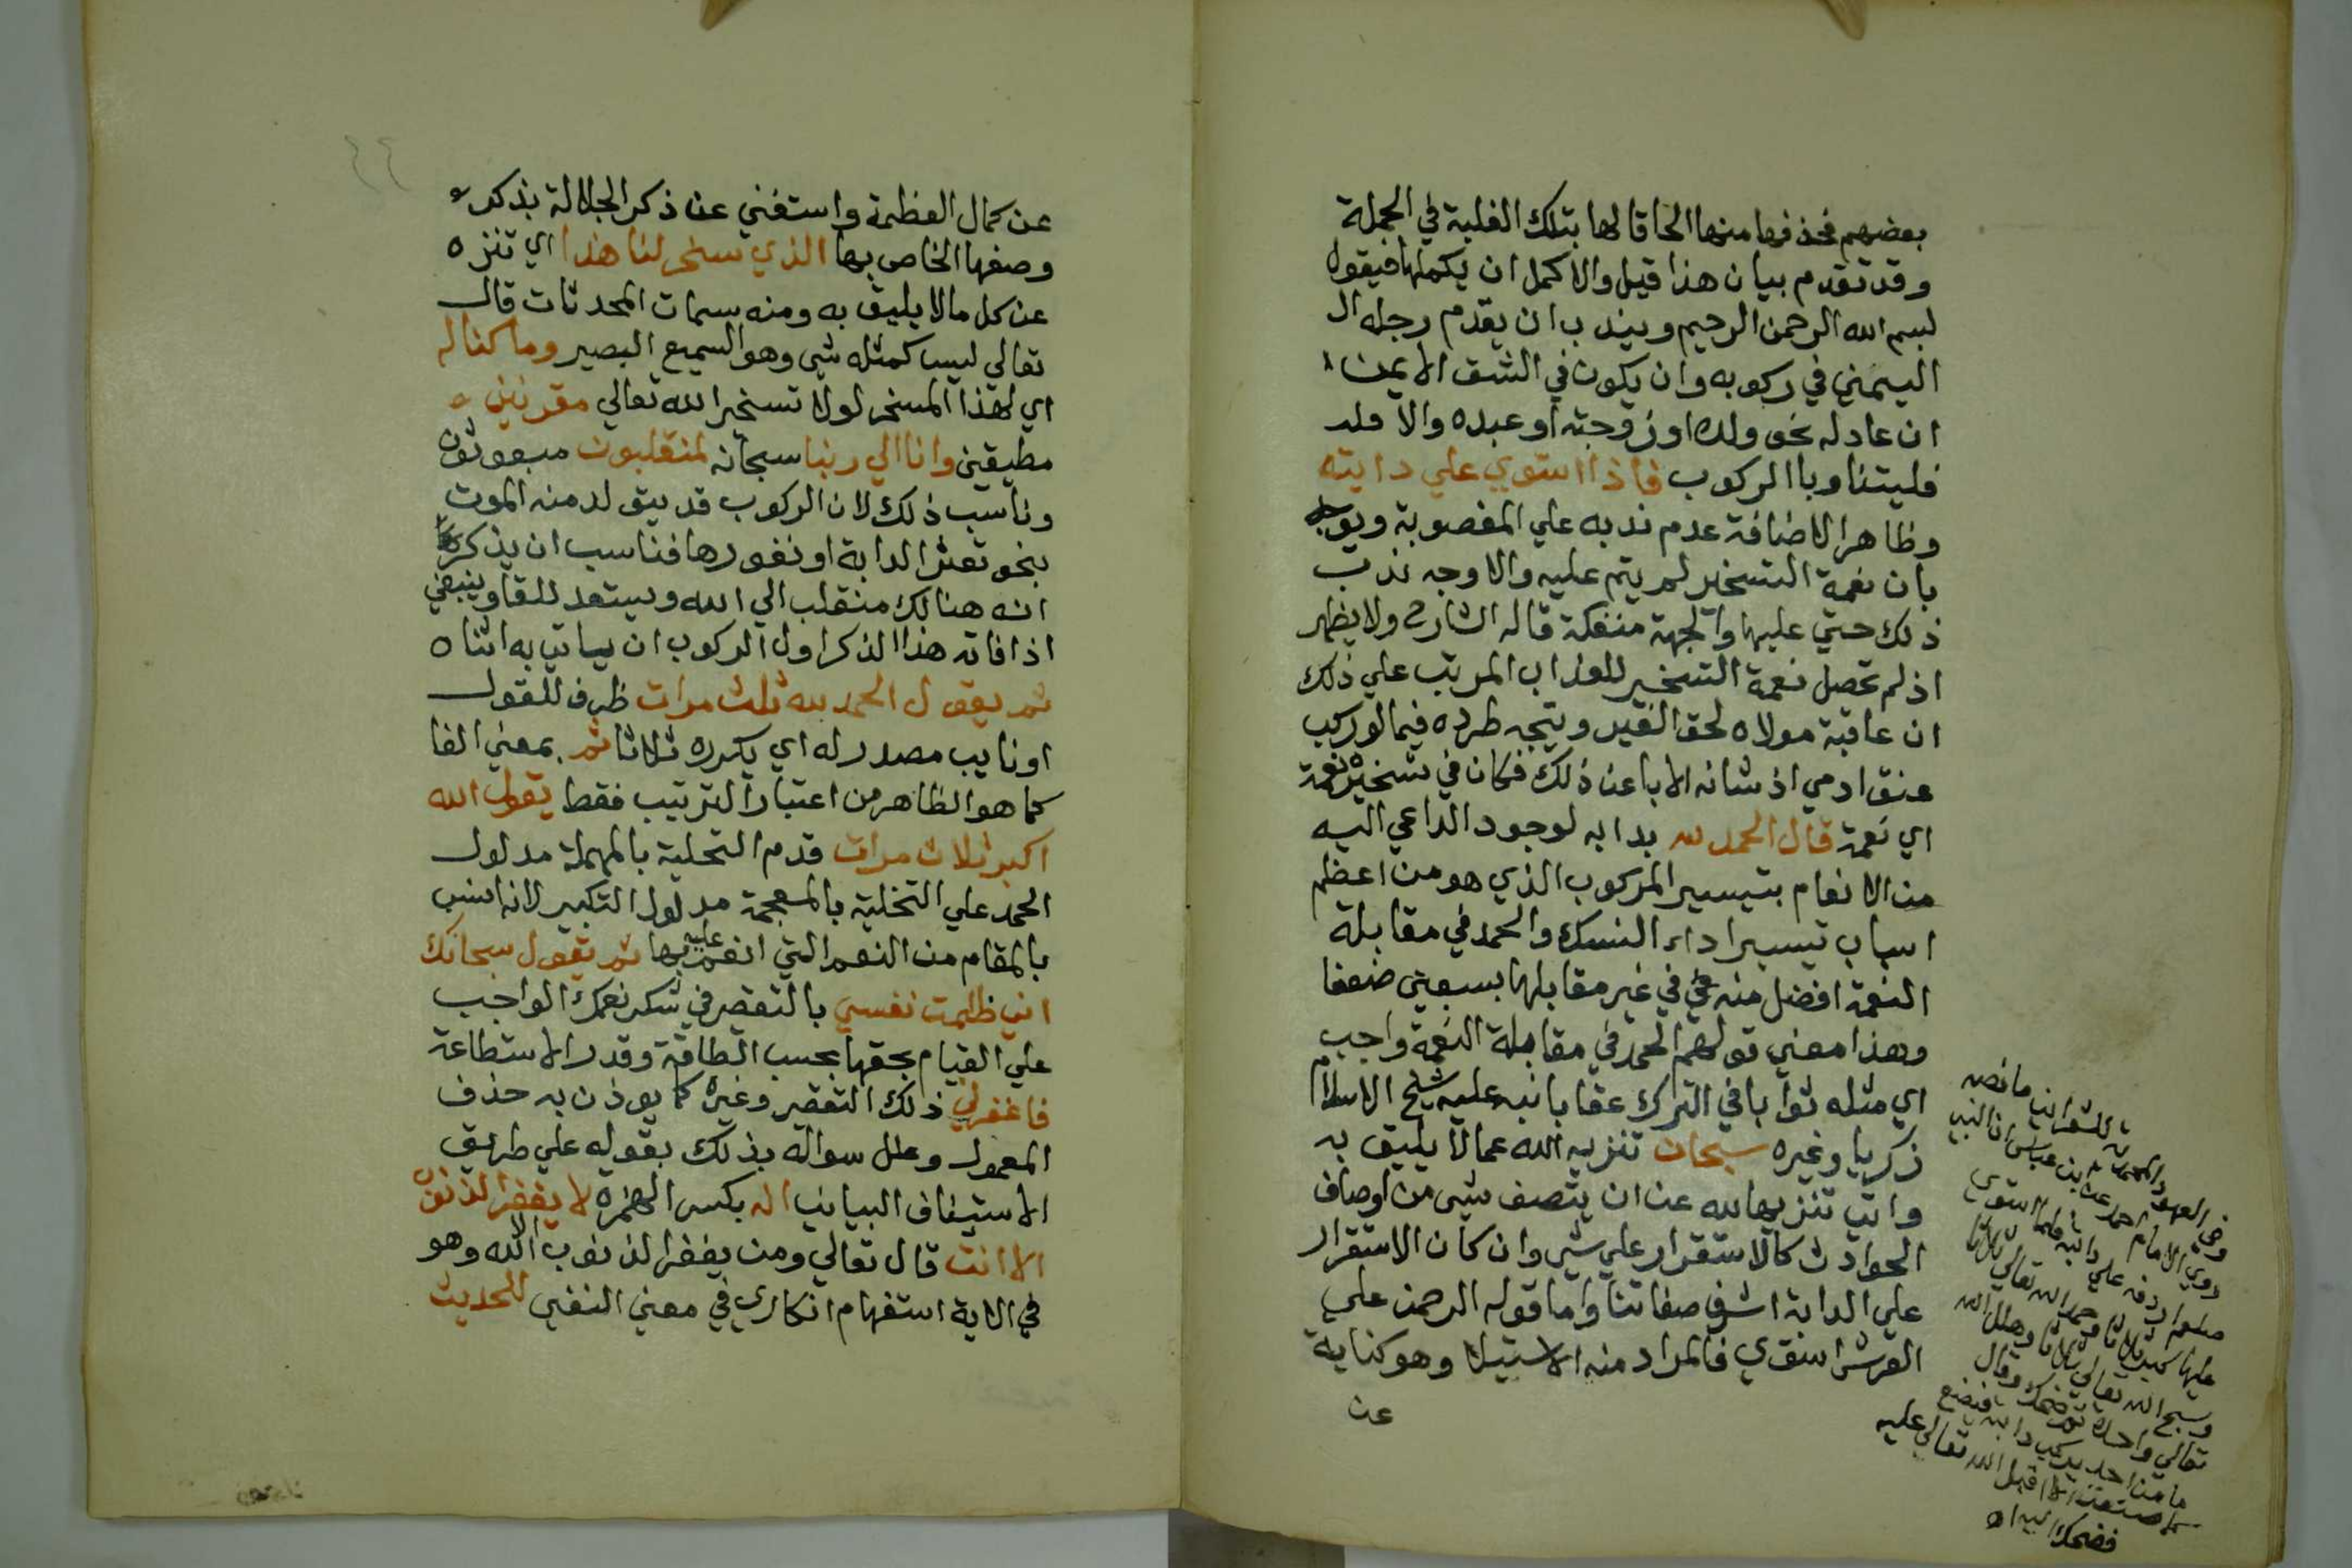 بعضهم فحذفها منها الحاقا لها بتلك الغلبة في الجملة
وقد تقدم بيان هذا قيل والاكمل ان يكملها فيقول
بسم الله الرحمن الرحيم ويندب ان يقدم رجله ال
اليمني في ركوبه وان يكون في الشق الايمن
ان عادله نحو ولده او زوجته او عبده والا فلد
فليتناوبا الركوب فاذا استوي علي دابته
وظاهر الاضافة عدم ندبه علي المغصوبة ويوجه
بان نعمة التسخير لم يتم عليه والاوجه ندب
ذلك حتي عليها والجهة منفكة قاله الشارح ولا يظهر
اذ لم تحصل نعمة التسخير للعذاب المرتب علي ذلك
ان عاقبة مولاه لحق الغير ويتجه طرده فيما لو ركب
عنق ادمي اذ شانه الابا عن ذلك فكان في تسخيره نعمة
اي نعمة قال الحمد لله بدا به لوجود الداعي اليه
من الانعام بتيسير المركوب الذي هو من اعظم
اسباب تيسير اداء النسك والحمد في مقابلة
النعمة افضل منه في غير مقابلها بسبعين ضعفا
وهذا معني قولهم الحمد في مقابلة النعمة واجب
اي مثله ثوابا في الترك عقابا نبه عليه شيخ الاسلام
زكريا وغيره سبحان تنزيه الله عما لا يليق به
واتي تنزيها لله عن ان يتصف بشي من اوصاف
الحوادث كالاستقرار علي شي وان كان الاستقرار
علي الدابة اشرف صفاتنا واما قوله الرحمن علي
العرش استوي فالمراد منه الاستيلا وهو كناية
عن
وفي العهود المحمدية للشعراني ما نصه
روي الامام احمد عن ابن عباس ان النبي
صلعم اردفه علي دابته فلما استوي
عليها كبر ثلاثا وحمد الله تعالي ثلاثا
وسبح الله تعالي ثلاثا وهلل الله
تعالي واحدة ثم ضحك وقال
ما من احد يركب دابته فيصنع
كما صنعت الا اقبل الله تعالي عليه
فضحك اليه اه
عن كمال العظمة واستغني عن ذكر الجلالة بذكر
وصفها الخاص بها الذي سخر لنا هذا اي تنزه
عن كل ما لا يليق به ومنه سمات المحدثات قال
تعالي ليس كمثله شي وهو السميع البصير وما كنا له
اي لهذا المسخر لولا تسخير الله تعالي مقرنين
مطيقين وانا الي ربنا سبحانه لمنقلبون مبعوثون
وناسب ذلك لان الركوب قد يتولد منه الموت
بنحو تعثر الدابة او نفورها فناسب ان يذكر
انه هنالك منقلب الي الله ويستعد للقا وينبغي
اذا فاته هذا الذكر اول الركوب ان ياتي به اثناه
ثم يقول الحمد لله ثلث مرات ظرف للقول
او نايب مصدر له اي يكرره ثلاثا ثم بمعني الفا
كما هو الظاهر من اعتبار الترتيب فقط يقول الله
اكبر ثلاث مرات قدم التحلية بالمهملة مدلول
الحمد علي التخلية بالمعجمة مدلول التكبير لانه انسب
بالمقام من النعم التي انعم عليه بها ثم يقول سبحانك
اني ظلمت نفسي بالتقصير في شكر نعمك الواجب
علي القيام بحقها بحسب الطاقة وقدر الاستطاعة
فاغفر لي ذلك التقصير وغيره كما يوذن به حذف
المعمول وعلل سواله بذلك بقوله علي طريق
الاستيناف البياني انه بكسر الهمزة لا يغفر الذنوب
الا انت قال تعالي ومن يغفر الذنوب الا الله وهو
في الاية استفهام انكاري في معني النفي للحديث